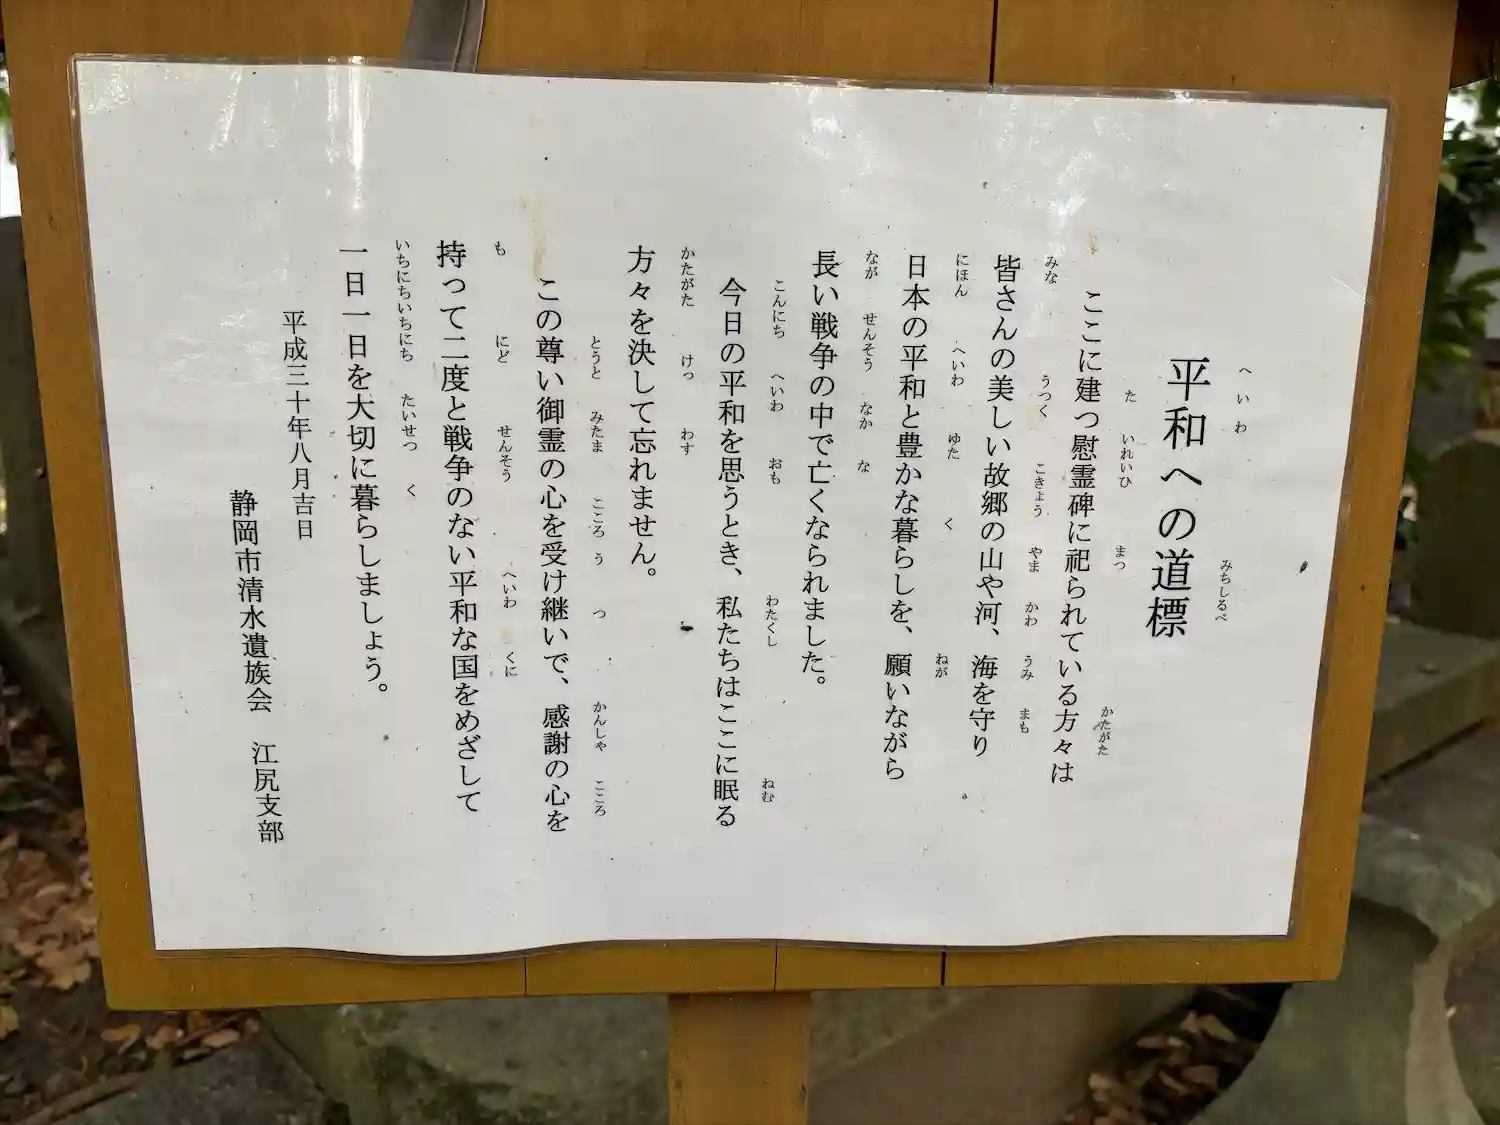 平和への道標
ここに建つ慰霊碑に祀られている方々は
皆さんの美しい故郷の山や河、海を守り
日本の平和と豊かな暮らしを、願いながら
長い戦争の中で亡くなられました。
今日の平和を思うとき、私たちはここに眠る
方々を決して忘れません。
この尊い御霊の心を受け継いで、感謝の心を
持って二度と戦争のない平和な国をめざして
一日一日を大切に暮らしましょう。
平成三十年八月吉日
静岡市清水遺族会　江尻支部